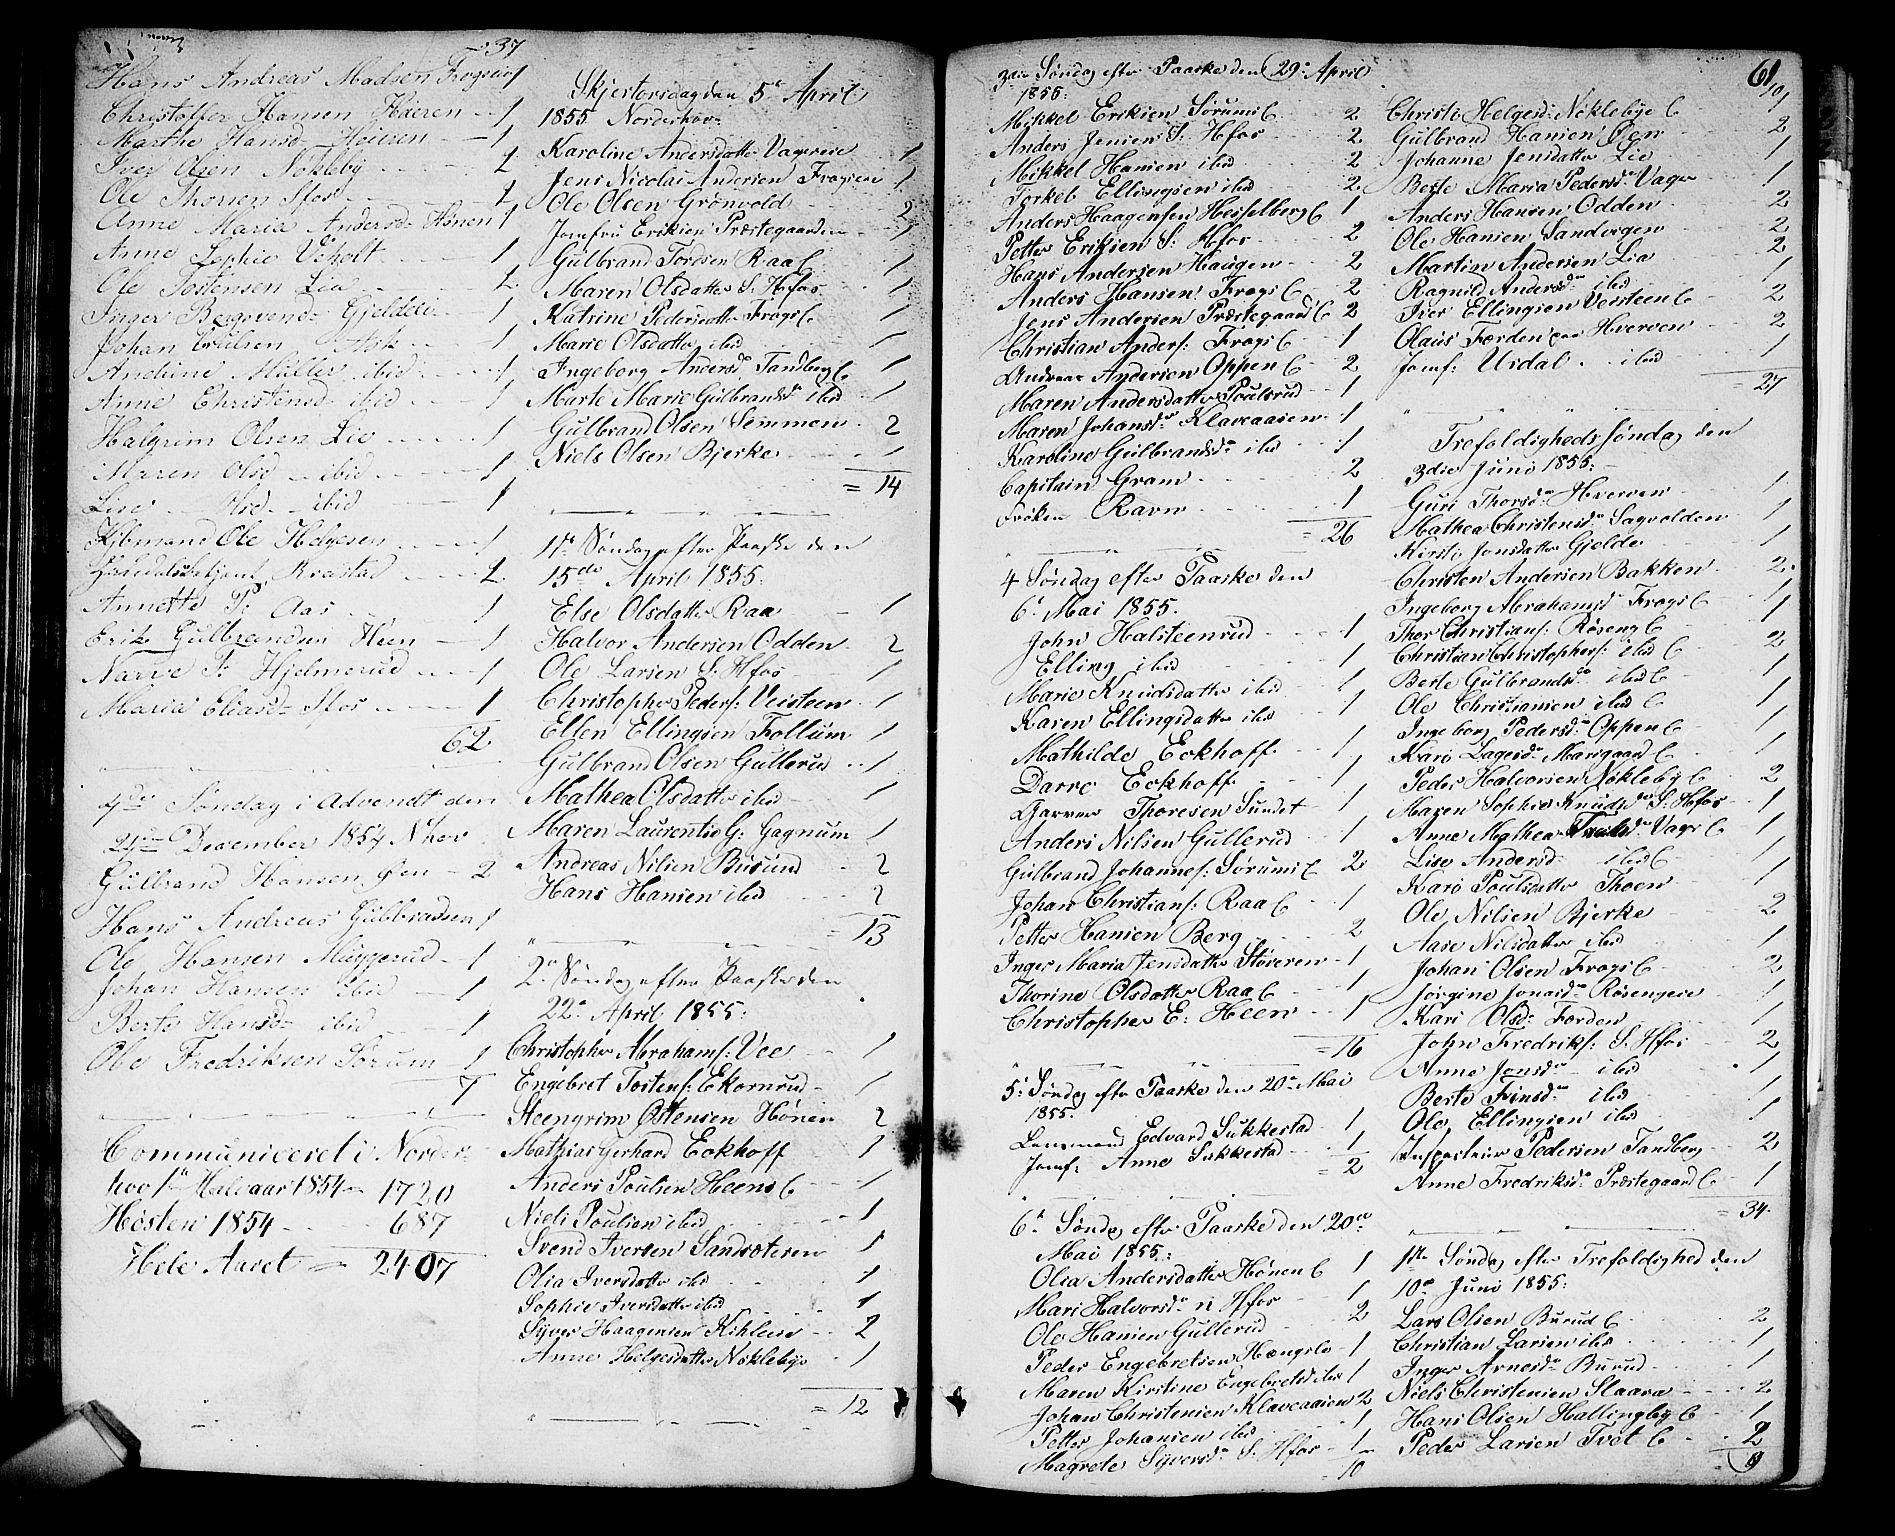 37
Hans Andreas Madsen Frogseie 1
Christoffer Hansen Haeren 1
Marthe Hansd. Heieren 1
Iver Olsen Nøkleby 2
Ole Thorsen Hfos 2
Anne Maria Andersd. Hønen 1
Anne Sophie Veholt 1
Ole Tostensen Lia 2
Inger Bergsvend. Gjeldeie 1
Johan Ask 1
Andrine Müller ibid 1
Anne Christensd. ibid 1
Halgrim Olsen Lie 1
Maren Olsd. ibid 1
Lise Olsd. ibid 1
Kjbmand Ole Helgesen 1
Handelsbetjent Kragstad 2
Annette P: Aas 1
Erik Gulbrandsen Heen 1
Narve P: Hjelmerud 1
Maria Eliasd. Hfos 1
62
4de Søndag i Advendt den
24de December 1854 N.hov
Gulbrand Hansen Øen 2
Hans Andreas Gulbrandsen 1
Ole Hansen Muggerud 1
Johan Hansen ibid 1
Berte Hansd. ibid 1
Ole Fredriksen Sørum 1
7
Communiceret i Norder-
hov 1ste Halvaar 1854 1720
Høsten 1854 687
Hele Aaret = 2407
Skjertorsdag den 5te April
1855 Norderhov
Karoline Andersdatter Vagereie 1
Jens Nicolai Andersen Frogseie 1
Ole Olsen Grønvold 2
Jomfru Eriksen Præstegaarden 1
Gulbrand Tordsen Raa E 1
Maren Olsdatter S. Hfos 1
Katrine Pedersdatter Frogs E 1
Marie Olsdatter ibid 1
Ingeborg Andersdr Tandberg E 1
Marte Marie Gulbrandsd ibid 1
Gulbrand Olsen Semmen 2
Niels Olsen Bjerke 1
= 14
1ste Søndag efter Paaske den
15de April 1855:
Else Olsdatter Raa 1
Halvor Andersen Odden 2
Ole Larsen S. Hfos 1
Christopher Peders: Veisteen 1
Ellen Ellingsen Follum 1
Gulbrand Olsen Gullerud 1
Mathea Olsdatter ibid 1
Maren Laurentie G: Gagnum 1
Andreas Nilsen Busund 2
Hans Hansen ibid 2
= 13
2den Søndag efter Paaske den
22de April 1855:
Christopher Abrahams: Vee 1
Engebret Tostens: Ekornrud 1
Steengrim Østensen Hønen 2
Mathias Gerhard Eckhoff 1
Anders Poulsen Heens E 1
Niels Poulsen ibid 1
Svend Iversen Sandsæteren 1
Olia Iversdatter ibid 1
Sophie Iversdatter ibid 1
Syver Haagensen Kihleeie 2
Anne Helgesdatter Nøklebye 1
= 12
61
3die Søndag efter Paaske den 29de April
1855:
Mikkel Eriksen Sørums E 2
Anders Jensen S: Hfos 2
Mikkel Hansen ibid 2
Torkel Ellingsen ibid 2
Anders Haagensen Hesselberg E 1
Petter Eriksen S: Hfos 2
Hans Andersen Haugen 2
Anders Hansen Frogs E 2
Jens Andersen Præstegaard E 2
Christian Anders: Frogs E 1
Andreas Andersen Oppen E 2
Maren Andersdatter Poulsrud 1
Maren Johansdr Klaveaasen 1
Karoline Gulbrandsdr ibid 1
Capitain Gram 2
Frøken Ravn 1
= 26
4 Søndag efter Paaske den
6te Mai 1855.
John Halsteenrud 1
Elling ibid 1
Marie Knudsdatter ibid 1
Karen Ellingsdatter ibid 1
Mathilde Eckhoff 1
Darre Eckhoff 1
Garver Thoresen Sundet 1
Anders Nilsen Gullerud 1
Gulbrand Johannes: Sørums E 2
Johan Christians: Raa E 1
Petter Hansen Berg 2
Inger Maria Jensdatter Støveren 1
Thorine Olsdatter Raa E 1
Christopher E: Heen 1
= 16
5te Søndag efter Paaske den 20de Mai
1855.
Lensmand Edvard Sukkestad 1
Jomf: Anne Sukkestad 1
= 2
6te Søndag efter Paaske den 20de
Mai 1855:
Olia Andersdatter Hønen E 1
Mari Halvorsdr n Hfos 1
Ole Hansen Gullerud 2
Peder Engebretsen Hængsle 1
Maren Kirstine Engebretsd ibid 1
Johan Christensen Klaveaasen 2
Petter Johansen ibid 1
Magrete Syversdr S. Hfos 1
10
Christi Helgesd. Nøklebye E 1
Gulbrand Hansen Øen 2
Johanne Jensdatter Lie 1
Berte Maria Pedersdr Vager 1
Anders Hansen Odden 2
Ole Hansen Sandvigen 2
Martin Andersen Lia 2
Ragnild Andersdr ibid 1
Iver Ellingsen Veisteen E 2
Olaus Færden paa Hverven 2
Jomf: Usdal ibid 1
= 27
Trefoldigheds Søndag den
3die Juni 1855:
Guri Thorsdr Hverven 1
Mathea Christensdr Sagvolden 1
Kirsti Jonsdatter Gjelde 1
Christen Andersen Bakken 2
Ingeborg Abrahamsd Frogs E 1
Thor Christians: Røseng E 1
Christian Christophers: ibid E 2
Berte Gulbrandsdr ibid E 1
Ole Christiansen ibid E 1
Ingeborg Pedersdr Oppen E 1
Kari Lagesdr Marigaard E 1
Peder Halvorsen Nøkleby E 2
Maren Sophie Knudsdr S. Hfos 1
Anne Mathea Vagr E 1
Lise Andersd ibid E 1
Kari Poulsdatter Thoen 1
Ole Nilsen Bjerke 2
Aase Nilsdatter ibid 1
Johan Olsen Frogs E 2
Jørgine Jonasdr Røsengeie 1
Kari Olsd: Færden 1
John Fredriks: S. Hfos 2
Anne Jonsdr ibid 1
Berte Finsdr ibid 1
Ole Ellingsen ibid 1
Pedersen Tandberg 2
Anne Fredriksdr Præstegaard E 1
= 34
1ste Søndag efter Trefoldighed den
10de Juni 1855:
Lars Olsen Burud E 2
Christian Larsen ibid 1
Inger Arnesdr Burud 1
Niels Christensen Slaara 2
Hans Olsen Hallingby E 1
Peder Larsen Tvet E 2
9